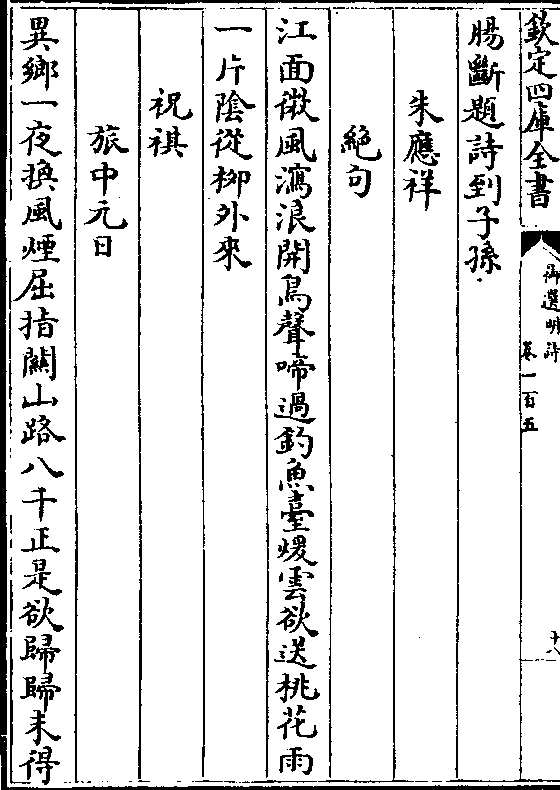 欽定四庫全書
御選明詩
卷一百五
十八
腸斷題詩到子孫
朱應祥
絶句
江面微風瀉浪開鳥聲啼過釣魚臺煖雲欲送桃花雨
一片隂從柳外來
祝祺
旅中元日
異鄉一夜換風煙屈指闗山路八千正是欲歸歸未得